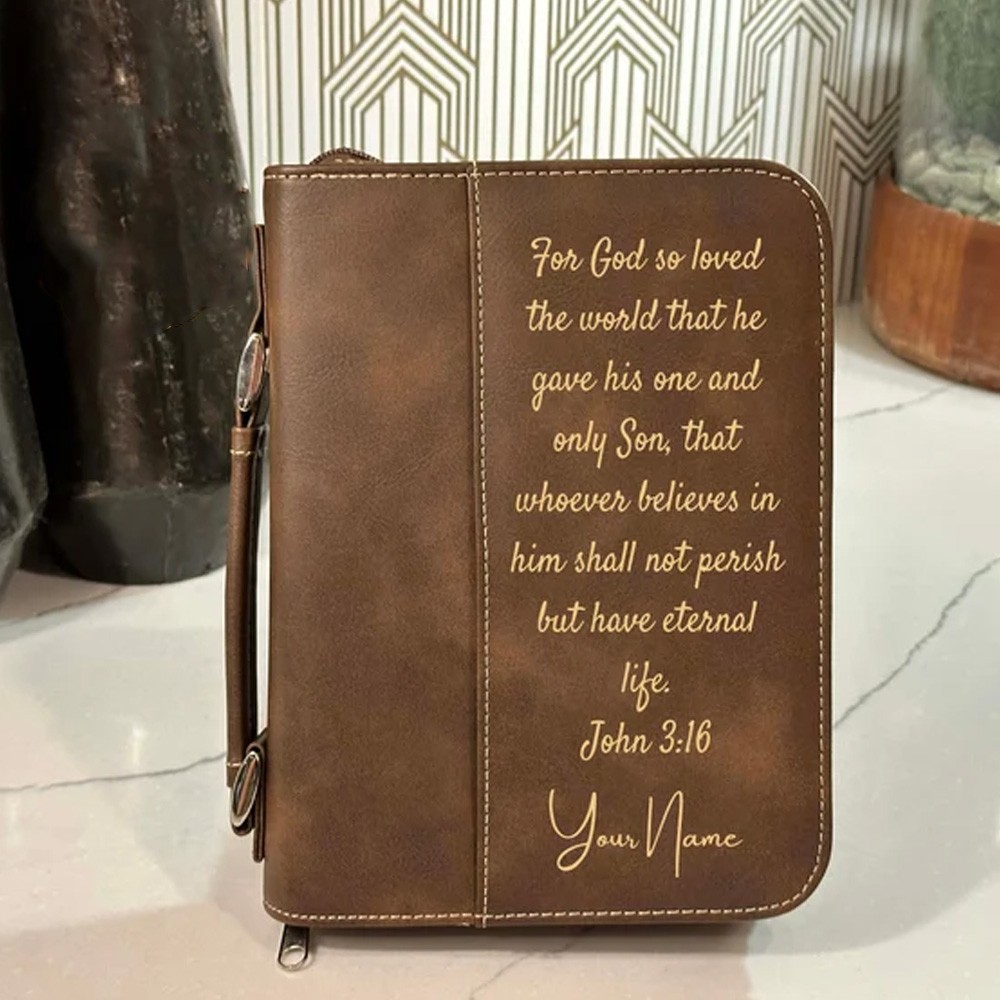 For God so loved
the world that he
gave his one and
only Son, that
whoever believes in
him shall not perish
but have eternal
life.
John 3:16
Your Name